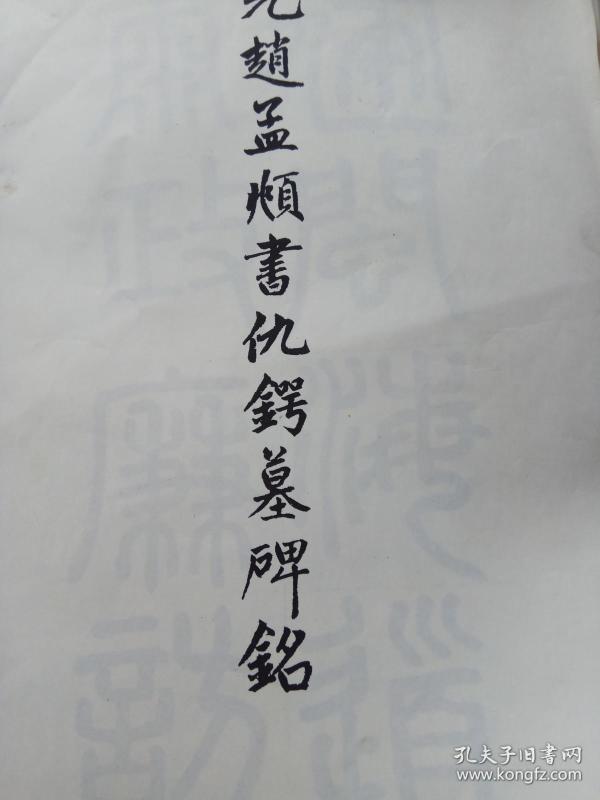 元趙孟頫書仇鍔墓碑銘
孔夫子旧书网
www.kongfz.com